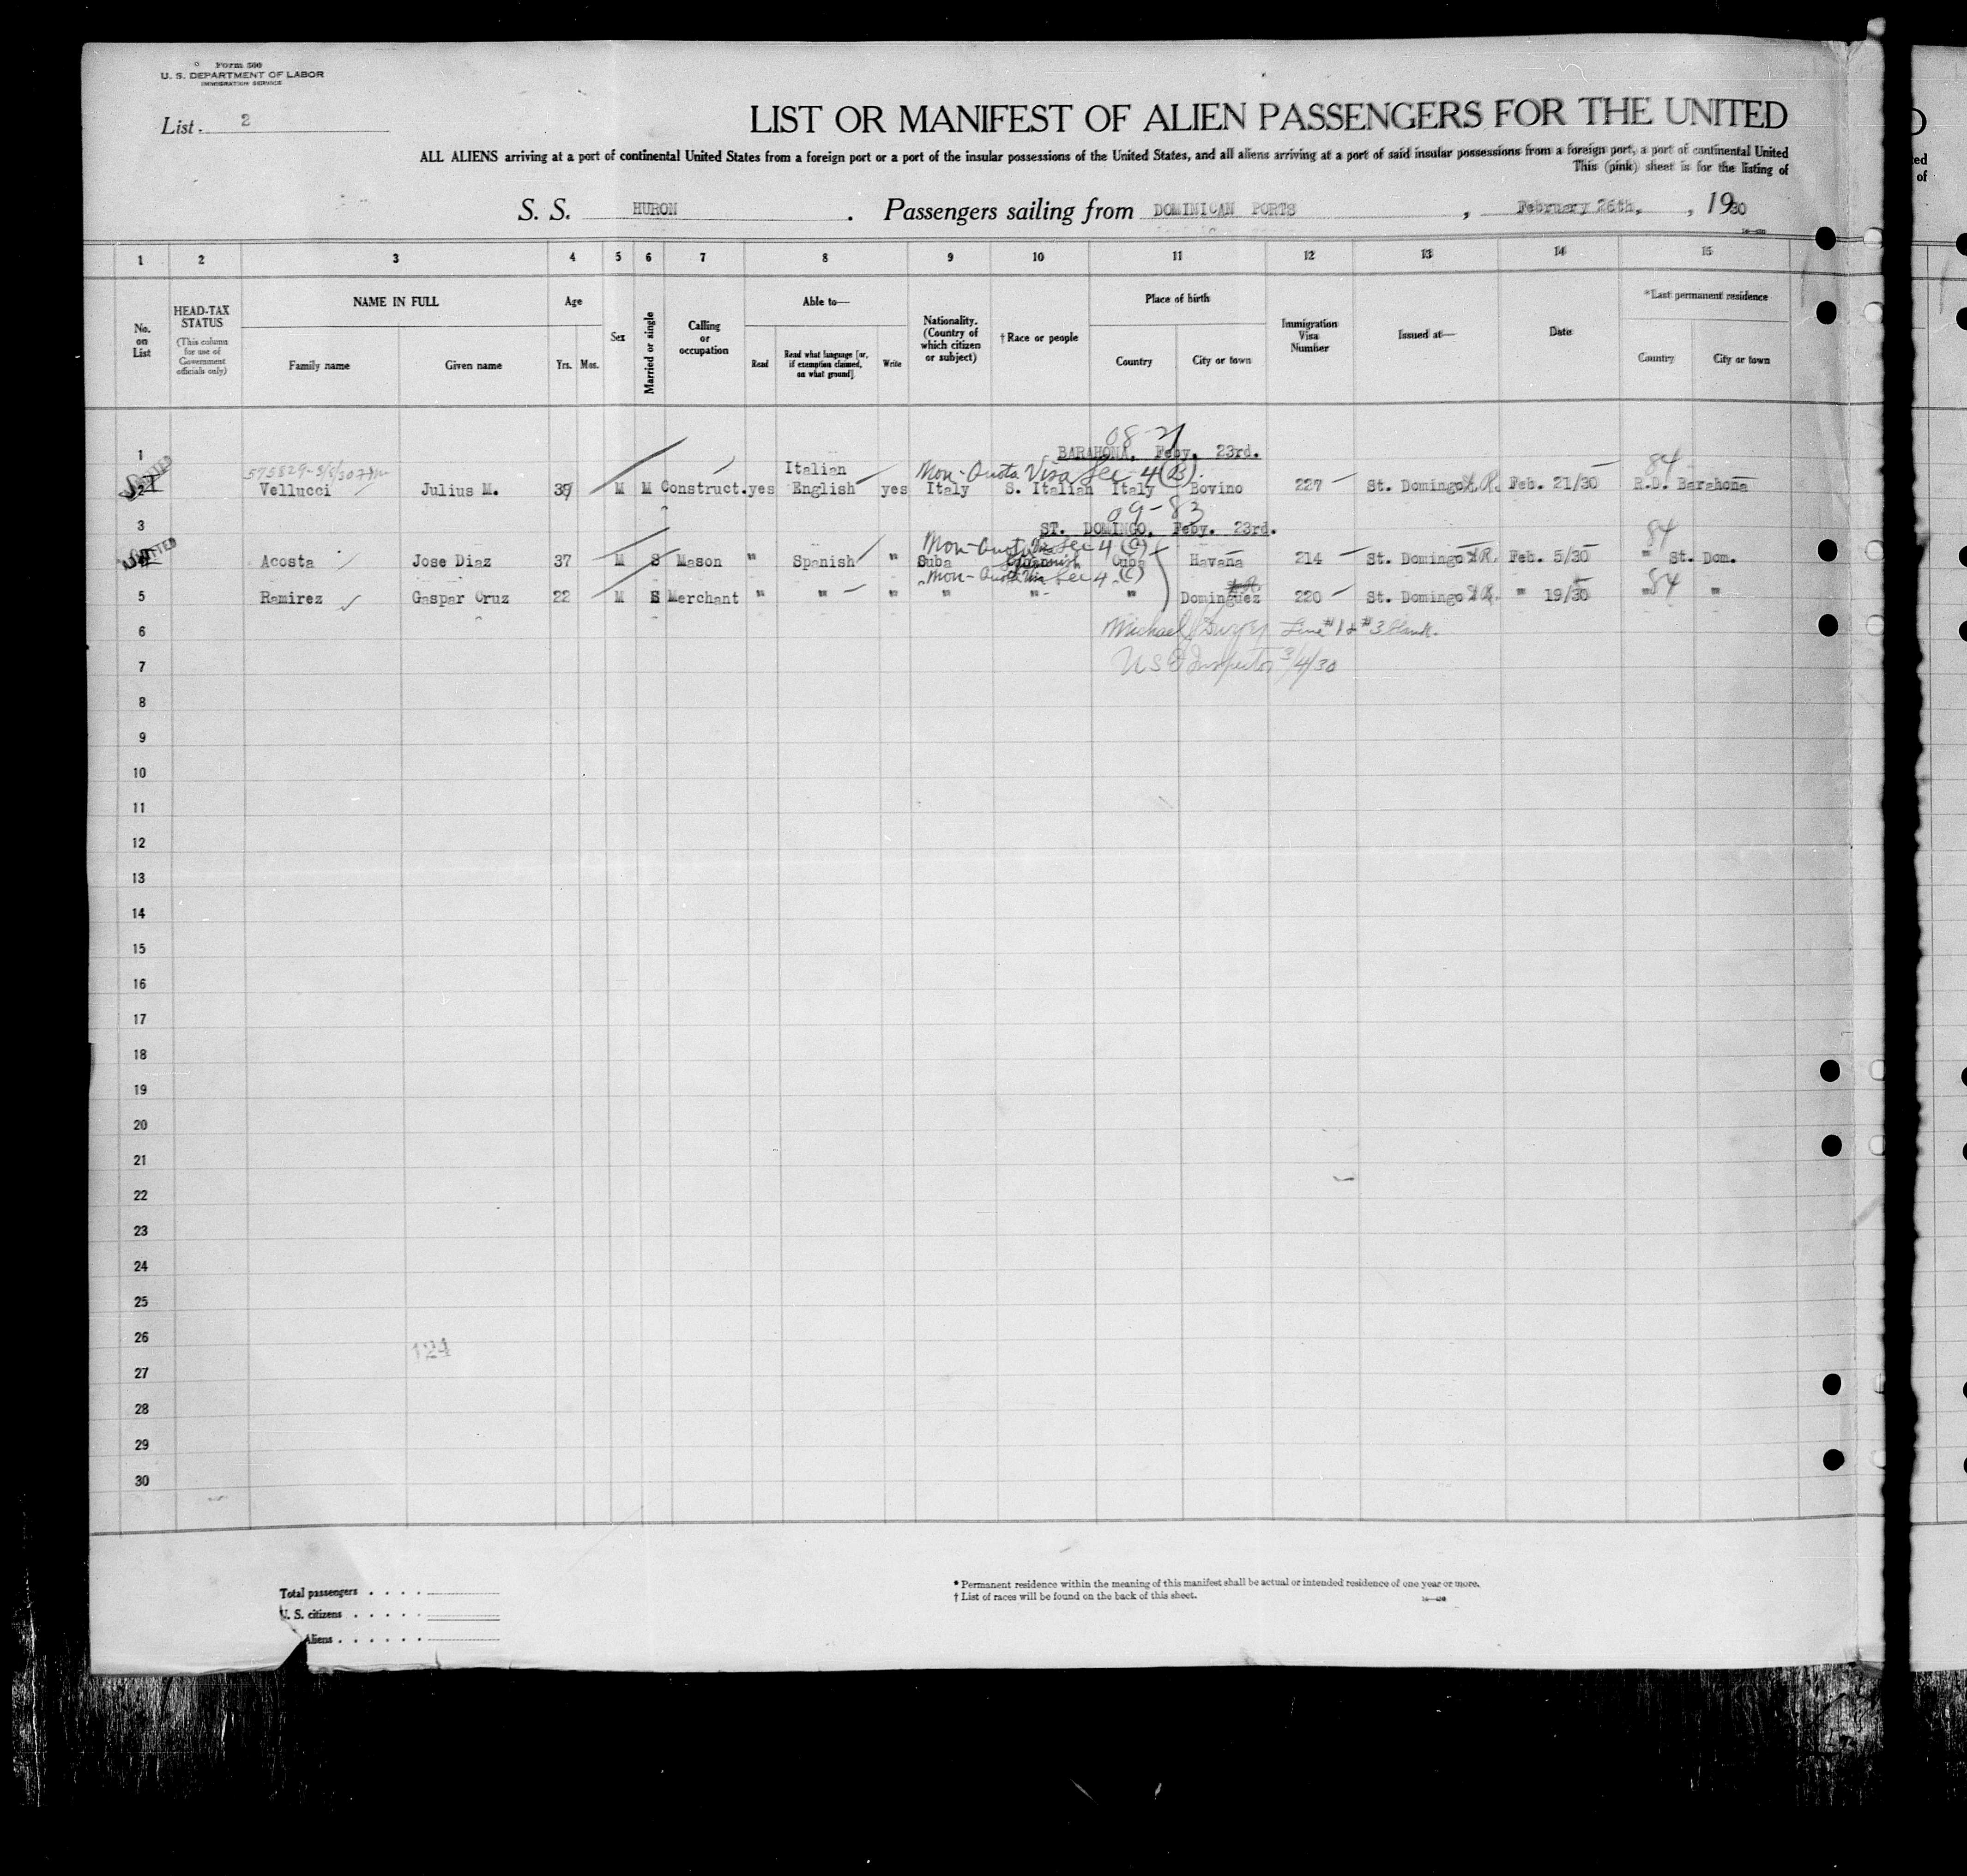 Form 500
U. S. DEPARTMENT OF LABOR
IMMIGRATION SERVICE
List 2
LIST OR MANIFEST OF ALIEN PASSENGERS FOR THE UNITED
ALL ALIENS arriving at a port of continental United States from a foreign port or a port of the insular possessions of the United States, and all aliens arriving at a port of said insular possessions from a foreign port, a port of continental United
This (pink) sheet is for the listing of
S. S. HURON. Passengers sailing from DOMINICAN PORTS, February 26th, 1930
1 2 3 4 5 6 7 8 9 10 11 12 13 14 15
No. on List
HEAD-TAX STATUS (This column for use of Government officials only)
NAME IN FULL
Family name
Given name
Age
Yrs. Mos.
Sex
Married or single
Calling or occupation
Able to—
Read
Read what language [or, if exemption claimed, on what ground]
Write
Nationality. (Country of which citizen or subject)
† Race or people
Place of birth
Country
City or town
Immigration Visa Number
Issued at—
Date
*Last permanent residence
Country
City or town
1 BARAHONA, Feby. 23rd.
08-21
Non-Quota Visa Sec 4 (B). 84
2 Vellucci Julius M. 39 M M Construct. yes Italian English yes Italy S. Italian Italy Bovino 227 St. Domingo D.R. Feb. 21/30 R.D. Barahona
09-83
3 ST. DOMINGO, Feby. 23rd.
Non-Quota Visa Sec 4 (C) 84
4 Acosta Jose Diaz 37 M S Mason " Spanish " Cuba Cuba Havana 214 St. Domingo D.R. Feb. 5/30 " St. Dom.
Non-Quota Visa Sec 4 (C) 84
5 Ramirez Gaspar Cruz 22 M S Merchant " " " " " " Dominguez 220 St. Domingo D.R. " 19/30 " "
6 Michael J Dwyer Line #1 & #3 blank.
7 U S I Inspector 3/4/30
8
9
10
11
12
13
14
15
16
17
18
19
20
21
22
23
24
25
26 124
27
28
29
30
Total passengers
U. S. citizens
Aliens
* Permanent residence within the meaning of this manifest shall be actual or intended residence of one year or more.
† List of races will be found on the back of this sheet.